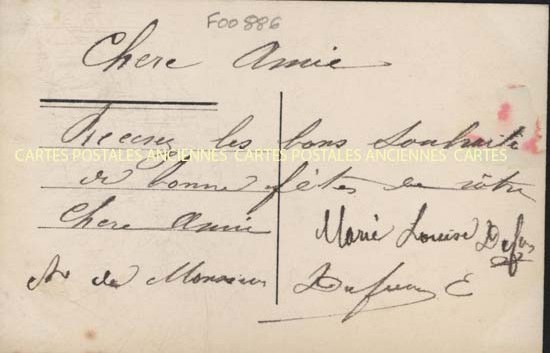 F00886
Chere Amie
Recevez les bons souhaits
CARTES POSTALES ANCIENNES CARTES POSTALES ANCIENNES CARTES
de bonne fêtes de votre
Chere Amie
Marie Louise
de Monsieur
E